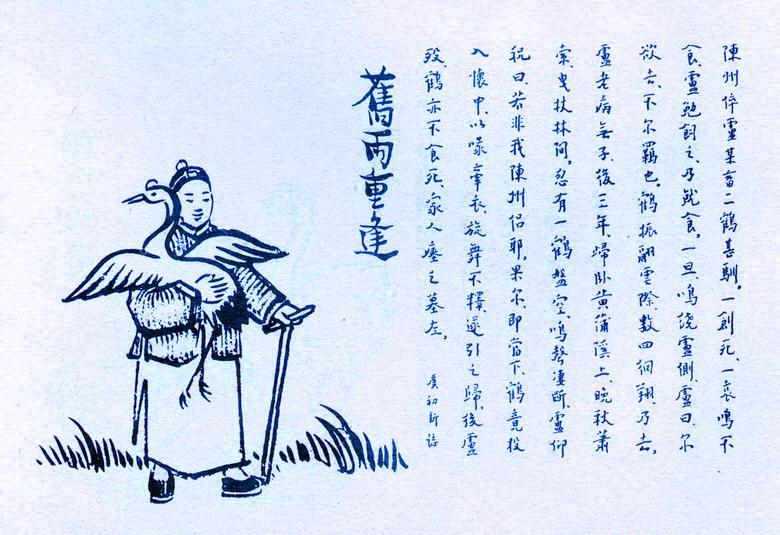 陳州倅盧某畜二鶴甚馴。一創死、一哀鳴不
食、盧勉飼之、乃就食。一旦、鳴繞盧側、盧曰、尔
欲去、不尔羈也。鶴振翮雲際、數四徊翔乃去。
盧老病無子、後三年、歸臥黃蒲溪上、晚秋蕭
索、曳杖林间。忽有一鶴盤空、鳴聲凄斷。盧仰
祝曰、若非我陳州侶耶、果尔、即當下。鶴竟投
入懷中、以喙牽衣、旋舞不釋。遂引之歸。後盧
歿、鶴亦不食死、家人瘞之墓左。
虞初新誌
舊雨重逢